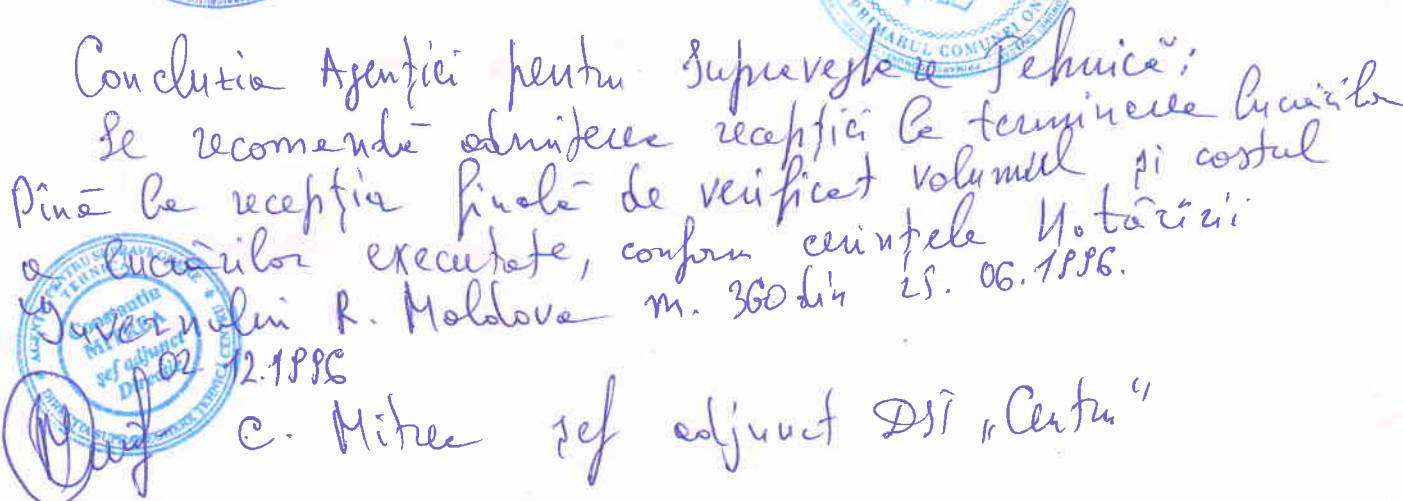 PRIMARUL COMUNEI ON
Concluzia Agenției pentru Supraveghere Tehnică:
Se recomandă admiterea recepției la terminarea lucrărilor
Pînă la recepția finală de verificat volumul și costul
a lucrărilor executate, conform cerințele Hotărîrii
Guvernului R. Moldova nr. 360 din 25.06.1996.
AGENȚIA PENTRU SUPRAVEGHERE TEHNICĂ
Constantin
MITREA
șef adjunct
02.12.1996
C. Mitrea șef adjunct DST „Centru"